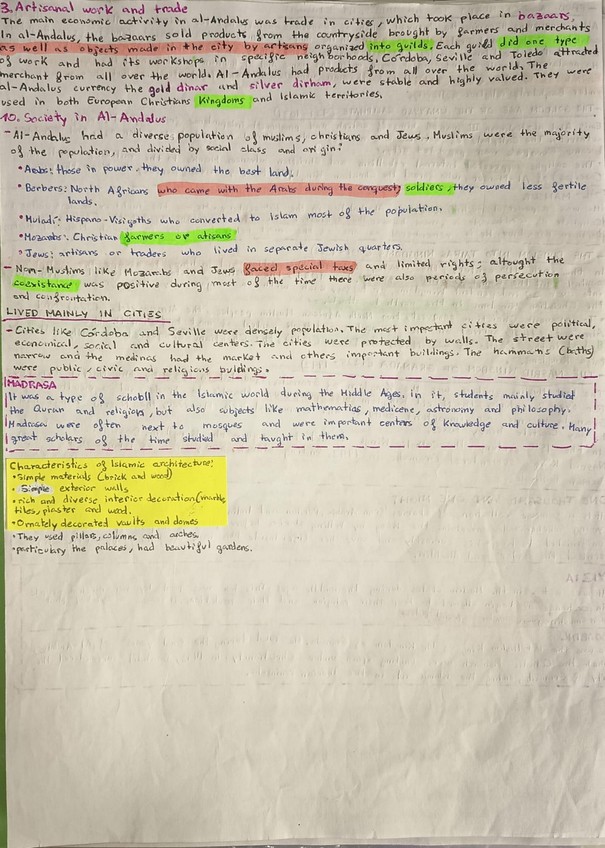 3. Artisanal work and trade
The main economic activity in al-Andalus was trade in cities, which took place in bazaars.
In al-Andalus, the bazaars sold products from the countryside brought by farmers and merchants
as well as objects made in the city by artisans organized into guilds. Each guild did one type
of work and had its workshops in specific neighborhoods. Córdoba, Seville and Toledo attracted
merchant from all over the world. Al-Andalus had products from all over the world. The
al-Andalus currency the gold dinar and silver dirham, were stable and highly valued. They were
used in both European Christians Kingdoms and Islamic territories.
10. Society in Al-Andalus
- Al-Andalus had a diverse population of muslims, christians and Jews. Muslims were the majority
of the population, and divided by social class and origin:
• Arabs: those in power, they owned the best land.
• Berbers: North Africans who came with the Arabs during the conquest; soldiers, they owned less fertile
lands.
• Muladi: Hispano-Visigoths who converted to Islam most of the population.
• Mozarabs: Christian farmers or atisans
• Jews: artisans or traders who lived in separate Jewish quarters.
- Non-Muslims like Mozarabs and Jews faced special taxs and limited rights; altought the
coexistance was positive during most of the time there were also periods of persecution
and confrontation.
LIVED MAINLY IN CITIES
- Cities like Córdoba and Seville were densely population. The most important cities were political,
economical, social and cultural centers. The cities were protected by walls. The street were
narrow and the medinas had the market and others important buildings. The hammams (baths)
were public, civic and religious buildings.
MADRASA
It was a type of scholl in the Islamic world during the Middle Ages. In it, students mainly studied
the Quran and religion, but also subjects like mathematics, medicene, astronomy and philosophy.
Madrasa were often next to mosques and were important centers of Knowledge and culture. Many
great scholars of the time studied and taught in them.
Characteristics of Islamic architecture:
• Simple materials (brick and wood)
• Simple exterior walls
• rich and diverse interior decoration (marble,
tiles, plaster and wood.
• Ornately decorated vaults and domes
• They used pillars, columns and arches.
• particulary the palaces, had beautiful gardens.